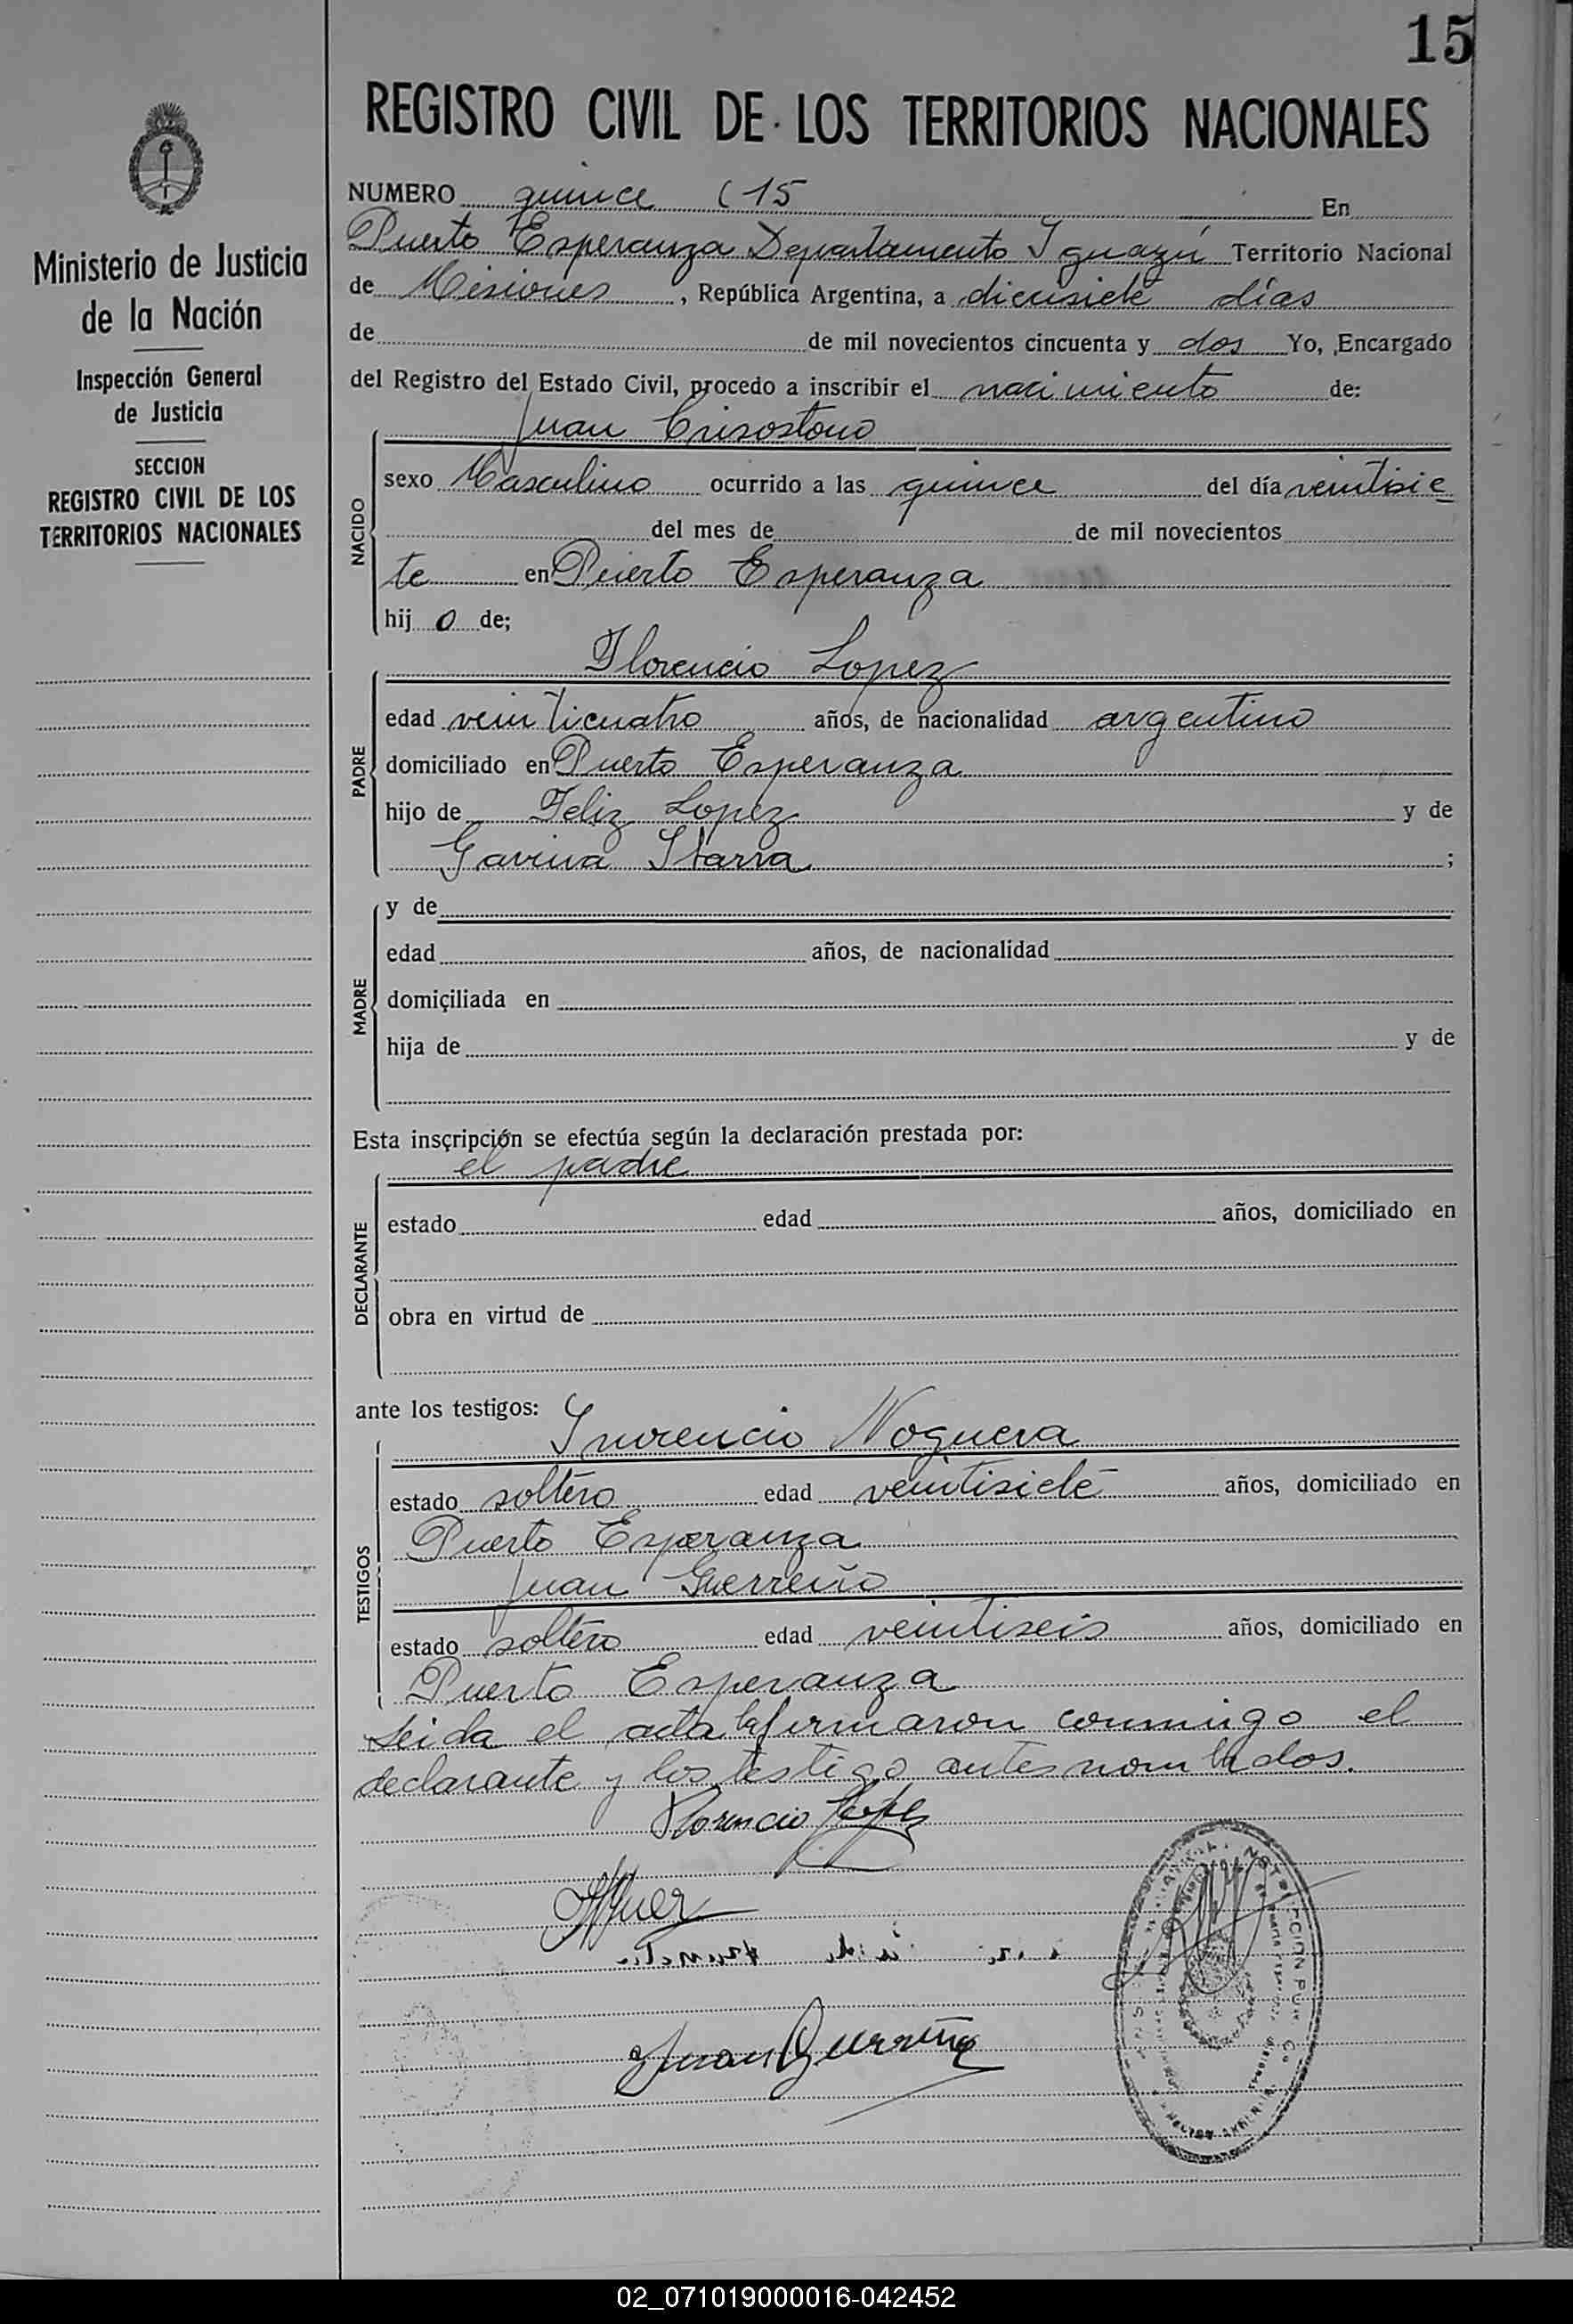 15
REGISTRO CIVIL DE LOS TERRITORIOS NACIONALES
Ministerio de Justicia
de la Nación
Inspección General
de Justicia
SECCION
REGISTRO CIVIL DE LOS
TERRITORIOS NACIONALES
NUMERO quince (15 En
Puerto Esperanza Departamento Iguazú Territorio Nacional
de Misiones, República Argentina, a diecisiete días
de de mil novecientos cincuenta y dos Yo, Encargado
del Registro del Estado Civil, procedo a inscribir el nacimiento de:
NACIDO
Juan Crisostomo
sexo Masculino ocurrido a las quince del día veintisie
del mes de de mil novecientos
te en Puerto Esperanza
hij o de;
PADRE
Florencio Lopez
edad veinticuatro años, de nacionalidad argentino
domiciliado en Puerto Esperanza
hijo de Feliz Lopez y de
Gavina Ibarra ;
MADRE
y de
edad años, de nacionalidad
domiciliada en
hija de y de
Esta inscripción se efectúa según la declaración prestada por:
el padre
DECLARANTE
estado edad años, domiciliado en
obra en virtud de
ante los testigos:
TESTIGOS
Inocencio Noguera
estado soltero edad veintisiete años, domiciliado en
Puerto Esperanza
Juan Guerreño
estado soltero edad veintiseis años, domiciliado en
Puerto Esperanza
Leida el acta la firmaron conmigo el
declarante y los testigo antes nombrados.
Florencio Lopez
Juan Guerreño
02_071019000016-042452